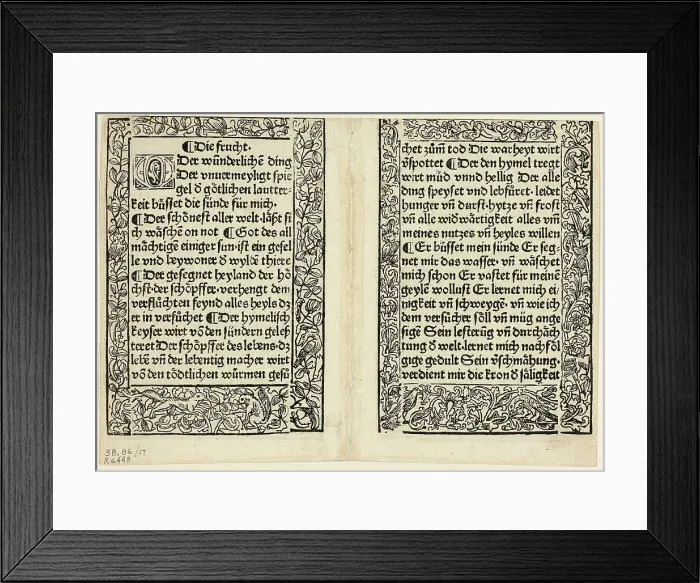 ¶Die frucht·
O Der wūnderlichē ding
Der vnuermeyligt spie
gel d̄ götlichen lautter⸗
keit büsset die sünde für mich·
¶Der schönest aller welt·laßt si
ch wäschē on not ¶Got des all
mächtigē einiger sun·ist ein gesel
le vnd beywoner d̄ wyldē thiere
¶Der gesegnet heyland der hö
chst·der schöpffer·verhengt dem
verflůchten feynd alles heyls dz
er in versůchet ¶Der hymelisch
keyser wirt vō den sündern geleſ
teret Der schöpffer des lebens·dz
lebē vn̄ der lebentig macher wirt
vō den tödtlichen würmen gefü
chet zům̄ tod Die warheyt wirt
v̄spottet ¶Der den hymel tregt
wirt müd vnnd hellig Der alle
ding speyset vnd lebfüret·leidet
hunger vn̄ durst·hytze vn̄ frost
vn̄ alle widwärtigkeit alles vm̄
meines nutzes vn̄ heyles willen
¶Er büsset mein sünde Er seg⸗
net mir das wasser· vn̄ wäschet
mich schon Er vastet für meinē
geylē wollust Er lernet mich ei⸗
nigkeit vn̄ schweygē· vn̄ wie ich
dem versůcher söll vn̄ müg ange
sigē Sein lesterūg vn̄ durchäch
tung d̄ welt·lernet mich nachföl
gige gedult Sein v̄schmähung·
verdient mir die kron d̄ säligkeit
38.86/17
R6448